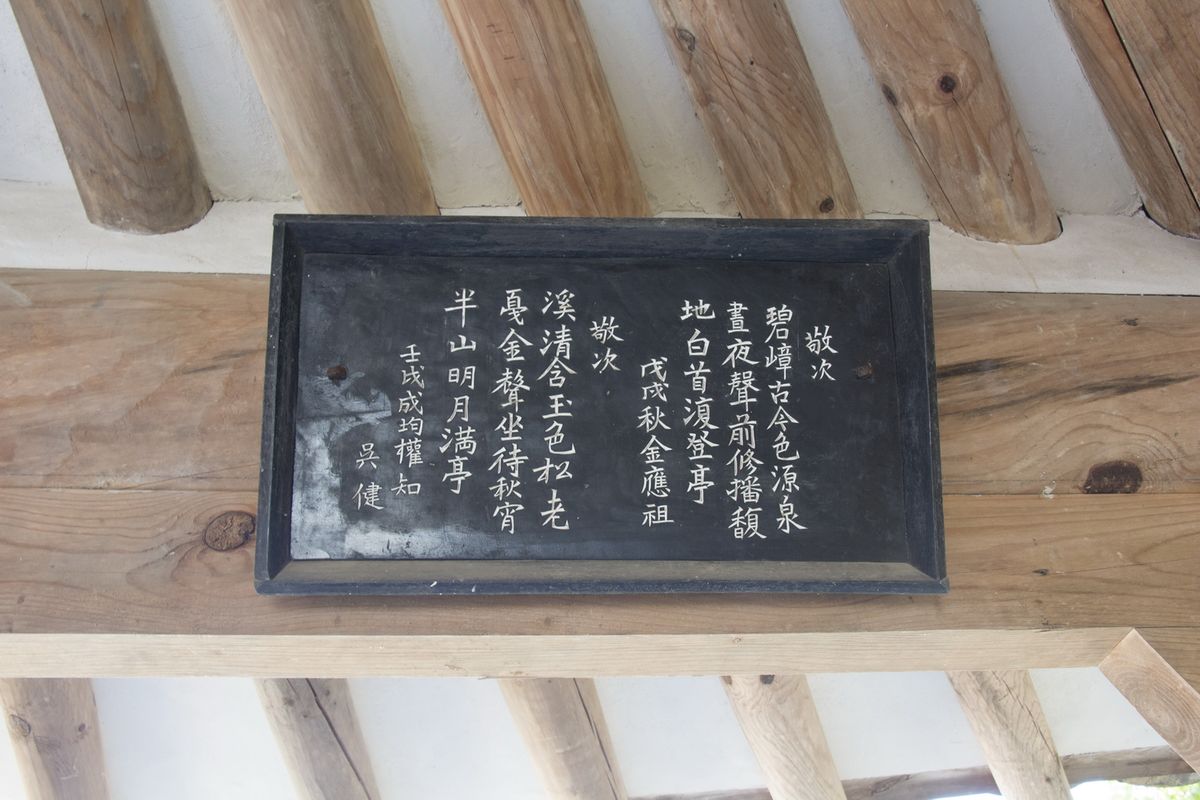 敬次
碧嶂古今色源泉
晝夜聲前修播馥
地白首澓登亭
戊戌秋金應祖
敬次
溪清含玉色松老
戛金聲坐待秋宵
半山明月満亭
壬戌成均權知
吳健